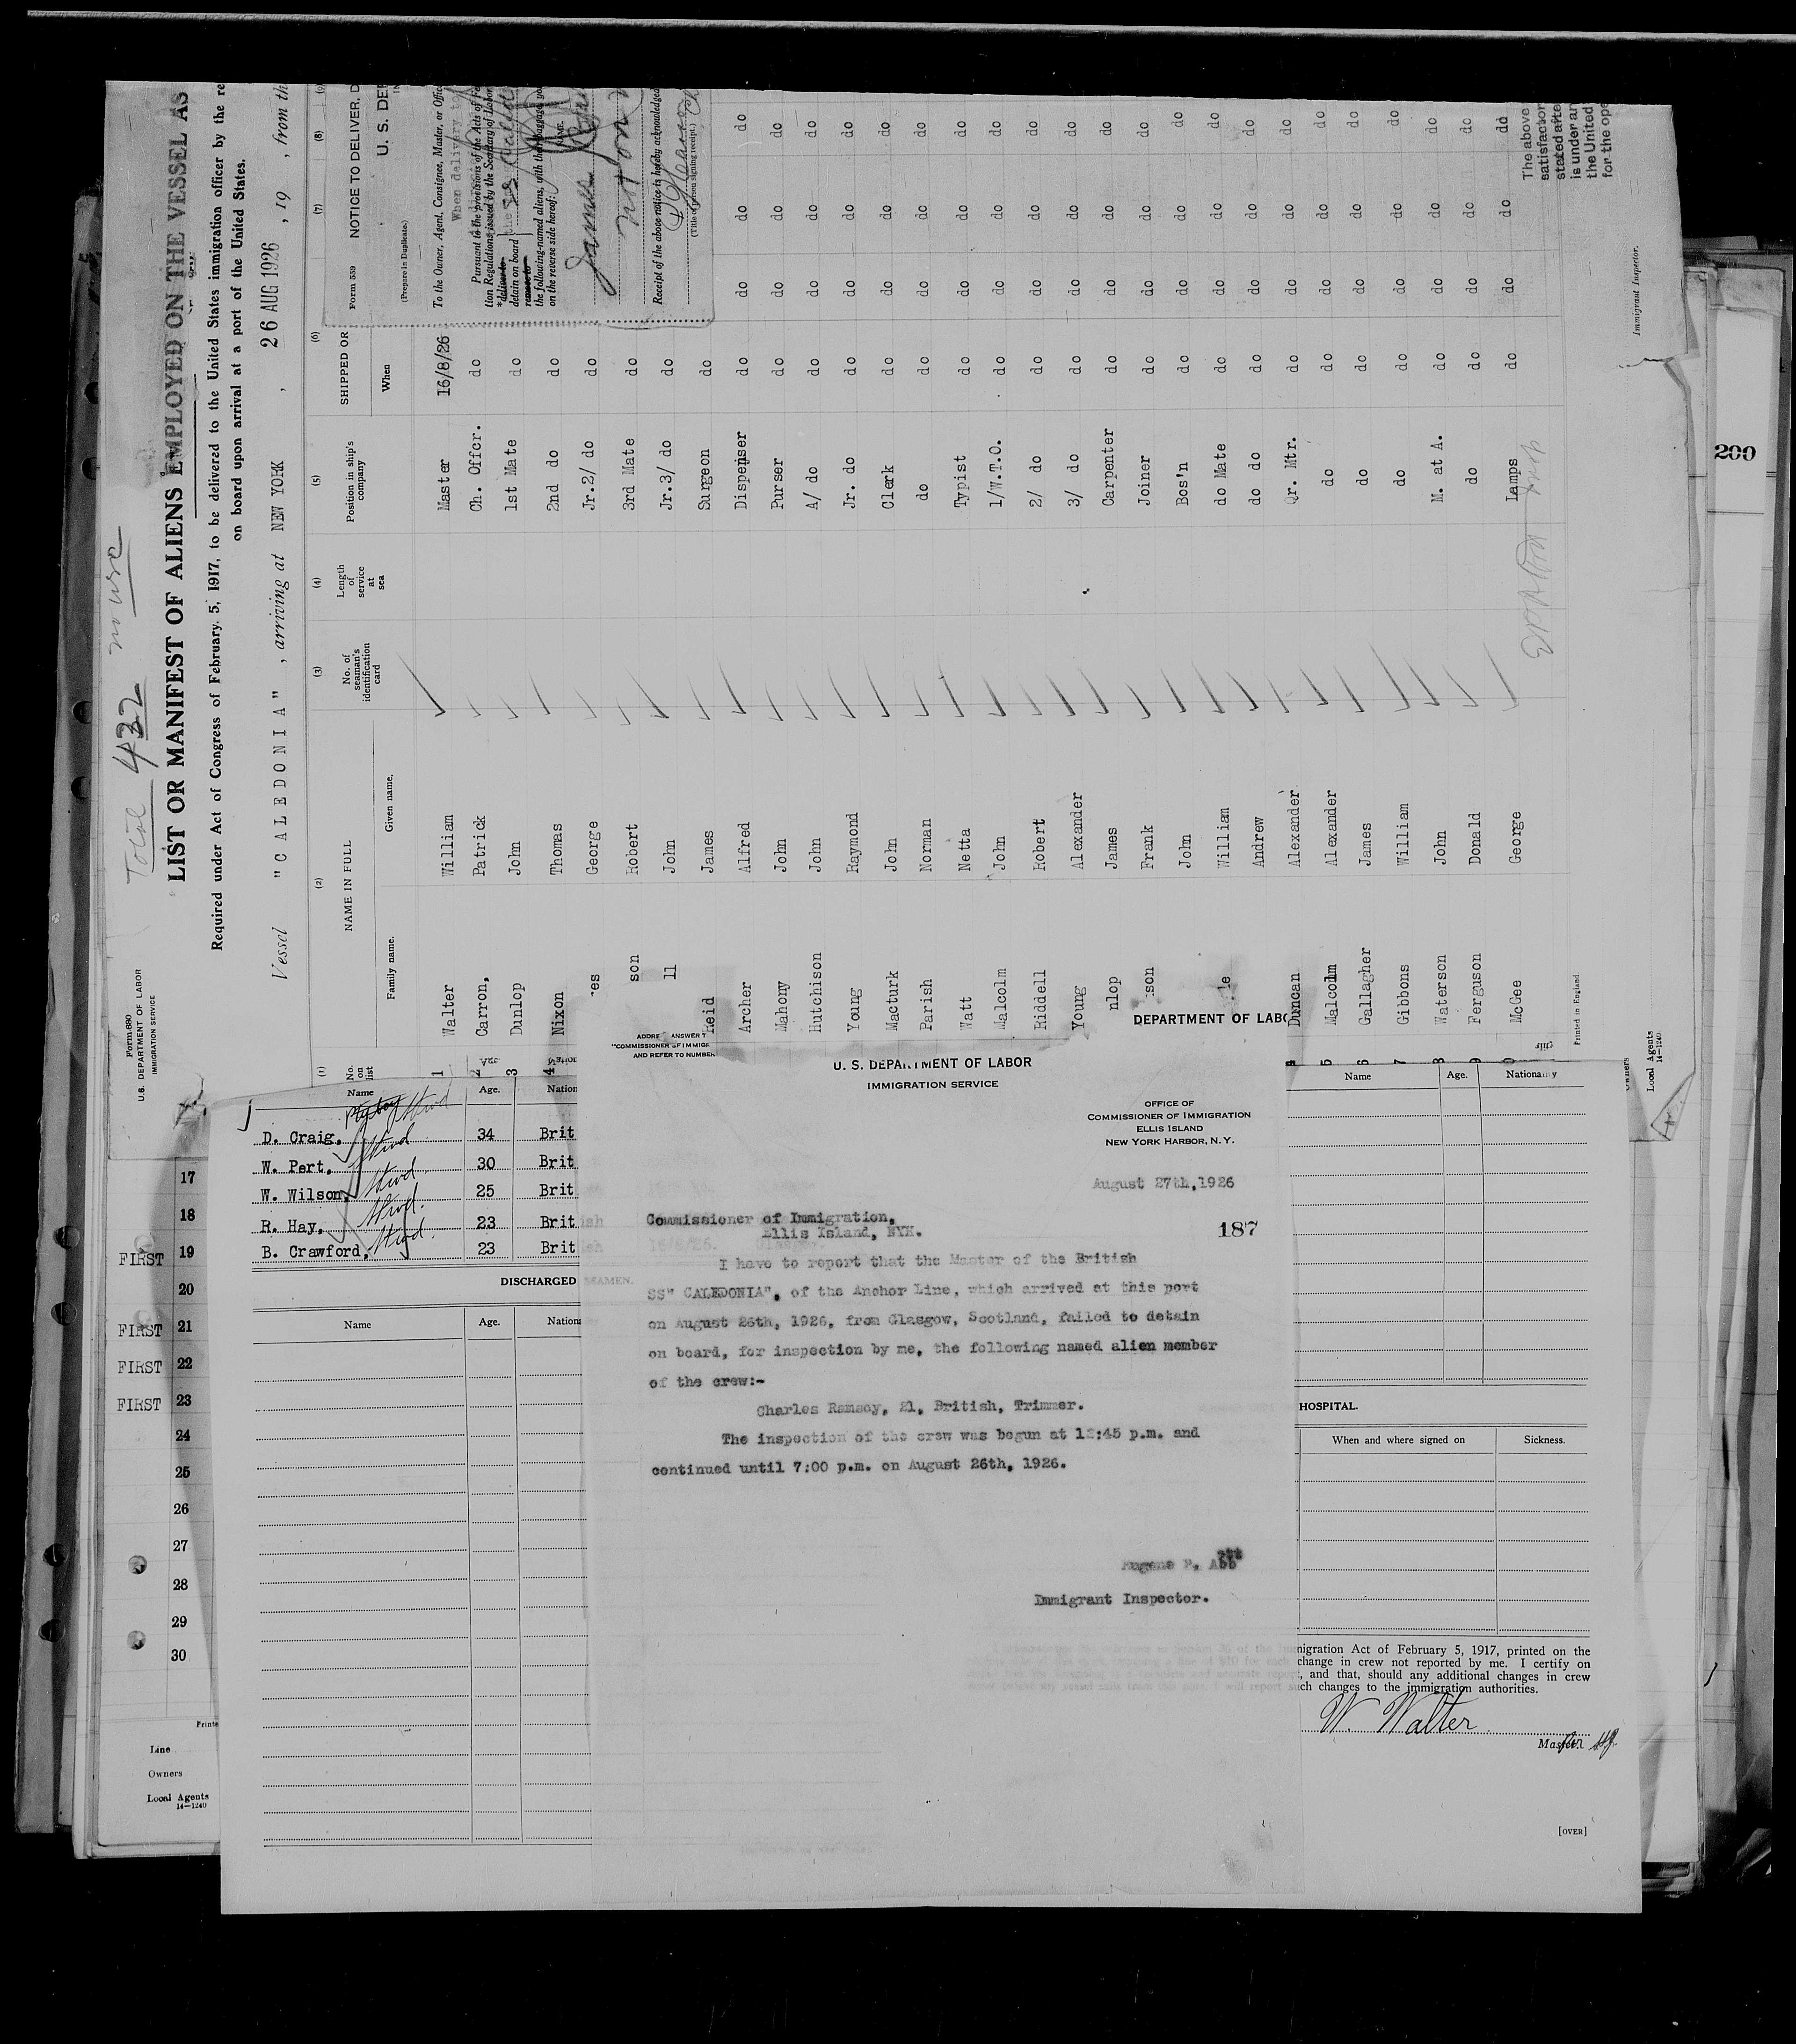 Total 432 no wrc
Form 680
U.S. DEPARTMENT OF LABOR
IMMIGRATION SERVICE
LIST OR MANIFEST OF ALIENS EMPLOYED ON THE VESSEL AS
Required under Act of Congress of February 5, 1917, to be delivered to the United States immigration officer by the re
on board upon arrival at a port of the United States.
Vessel "CALEDONIA", arriving at NEW YORK, 26 AUG 1926, 19 , from th
(1) (2) (3) (4) (5) (6) (7) (8) (9)
No. on list
NAME IN FULL
Family name. Given name.
No. of seaman's identification card
Length of service at sea
Position in ship's company
SHIPPED OR
When
1 Walter William Master 16/8/26
2 Carron, Patrick Ch. Offcr. do
3 Dunlop John 1st Mate do
4 Nixon Thomas 2nd do do
es George Jr.2/ do do
son Robert 3rd Mate do
ll John Jr.3/ do do
Reid James Surgeon do
Archer Alfred Dispenser do do do do
Mahony John Purser do do do do
Hutchison John A/ do do do do do
Young Raymond Jr. do do do do do
Macturk John Clerk do do do do
Parish Norman do do do do do
Watt Netta Typist do do do do
Malcolm John 1/W.T.O. do do do do
Riddell Robert 2/ do do do do do
Young Alexander 3/ do do do do do
nlop James Carpenter do do do do
son Frank Joiner do do do do
John Bos'n do do do do
le William do Mate do do do do
Andrew do do do do do do
Duncan Alexander Qr. Mtr. do do do do
5 Malcolm Alexander do do do do do
6 Gallagher James do do do do do
7 Gibbons William do do do do do
8 Waterson John M. at A. do do do do
9 Ferguson Donald do do do do do
0 McGee George Lamps do do do dd
Printed in England.
Owners
Local Agents
14-1240
Immigrant Inspector.
The above
satisfactor
stated afte
is under an
the United
for the ope
Form 559
NOTICE TO DELIVER, D
U. S. DEP
(Prepare in Duplicate.)
To the Owner, Agent, Consignee, Master, or Office
When delivery to
Pursuant to the provisions of the Acts of Fe
tion Regulations issued by the Secretary of Labor
*deliver to
detain on board the SS
remove to
the following-named aliens, with their baggage, yo
on the reverse side hereof:
NAME.
James
not on
Receipt of the above notice is hereby acknowledged
(Title of person signing receipt.)
200
Name Age. Nation
D. Craig, 34 Brit
W. Pert, Stwd 30 Brit
W. Wilson, Stwd 25 Brit
R. Hay, Stwd. 23 Brit
B. Crawford, Stwd. 23 Brit
DISCHARGED SEAMEN.
Name Age. Nation
DEPARTMENT OF LABO
Name Age. Nationality
HOSPITAL.
When and where signed on Sickness.
17
18
FIRST 19
20
FIRST 21
FIRST 22
FIRST 23
24
25
26
27
28
29
30
Printe
Line
Owners
Local Agents
14-1240
ADDRE ANSWER T
"COMMISSIONER OF IMMIGR
AND REFER TO NUMBER
U. S. DEPARTMENT OF LABOR
IMMIGRATION SERVICE
OFFICE OF
COMMISSIONER OF IMMIGRATION
ELLIS ISLAND
NEW YORK HARBOR, N.Y.
August 27th,1926
Commissioner of Immigration,
Ellis Island, NYH.
187
I have to report that the Master of the British
SS" CALEDONIA", of the Anchor Line, which arrived at this port
on August 26th, 1926, from Glasgow, Scotland, failed to detain
on board, for inspection by me, the following named alien member
of the crew:-
Charles Ramsay, 21, British, Trimmer.
The inspection of the crew was begun at 12:45 p.m. and
continued until 7:00 p.m. on August 26th, 1926.
Eugene P. Abbott
Immigrant Inspector.
migration Act of February 5, 1917, printed on the
change in crew not reported by me. I certify on
, and that, should any additional changes in crew
such changes to the immigration authorities.
W. Walter
Master.
[OVER]